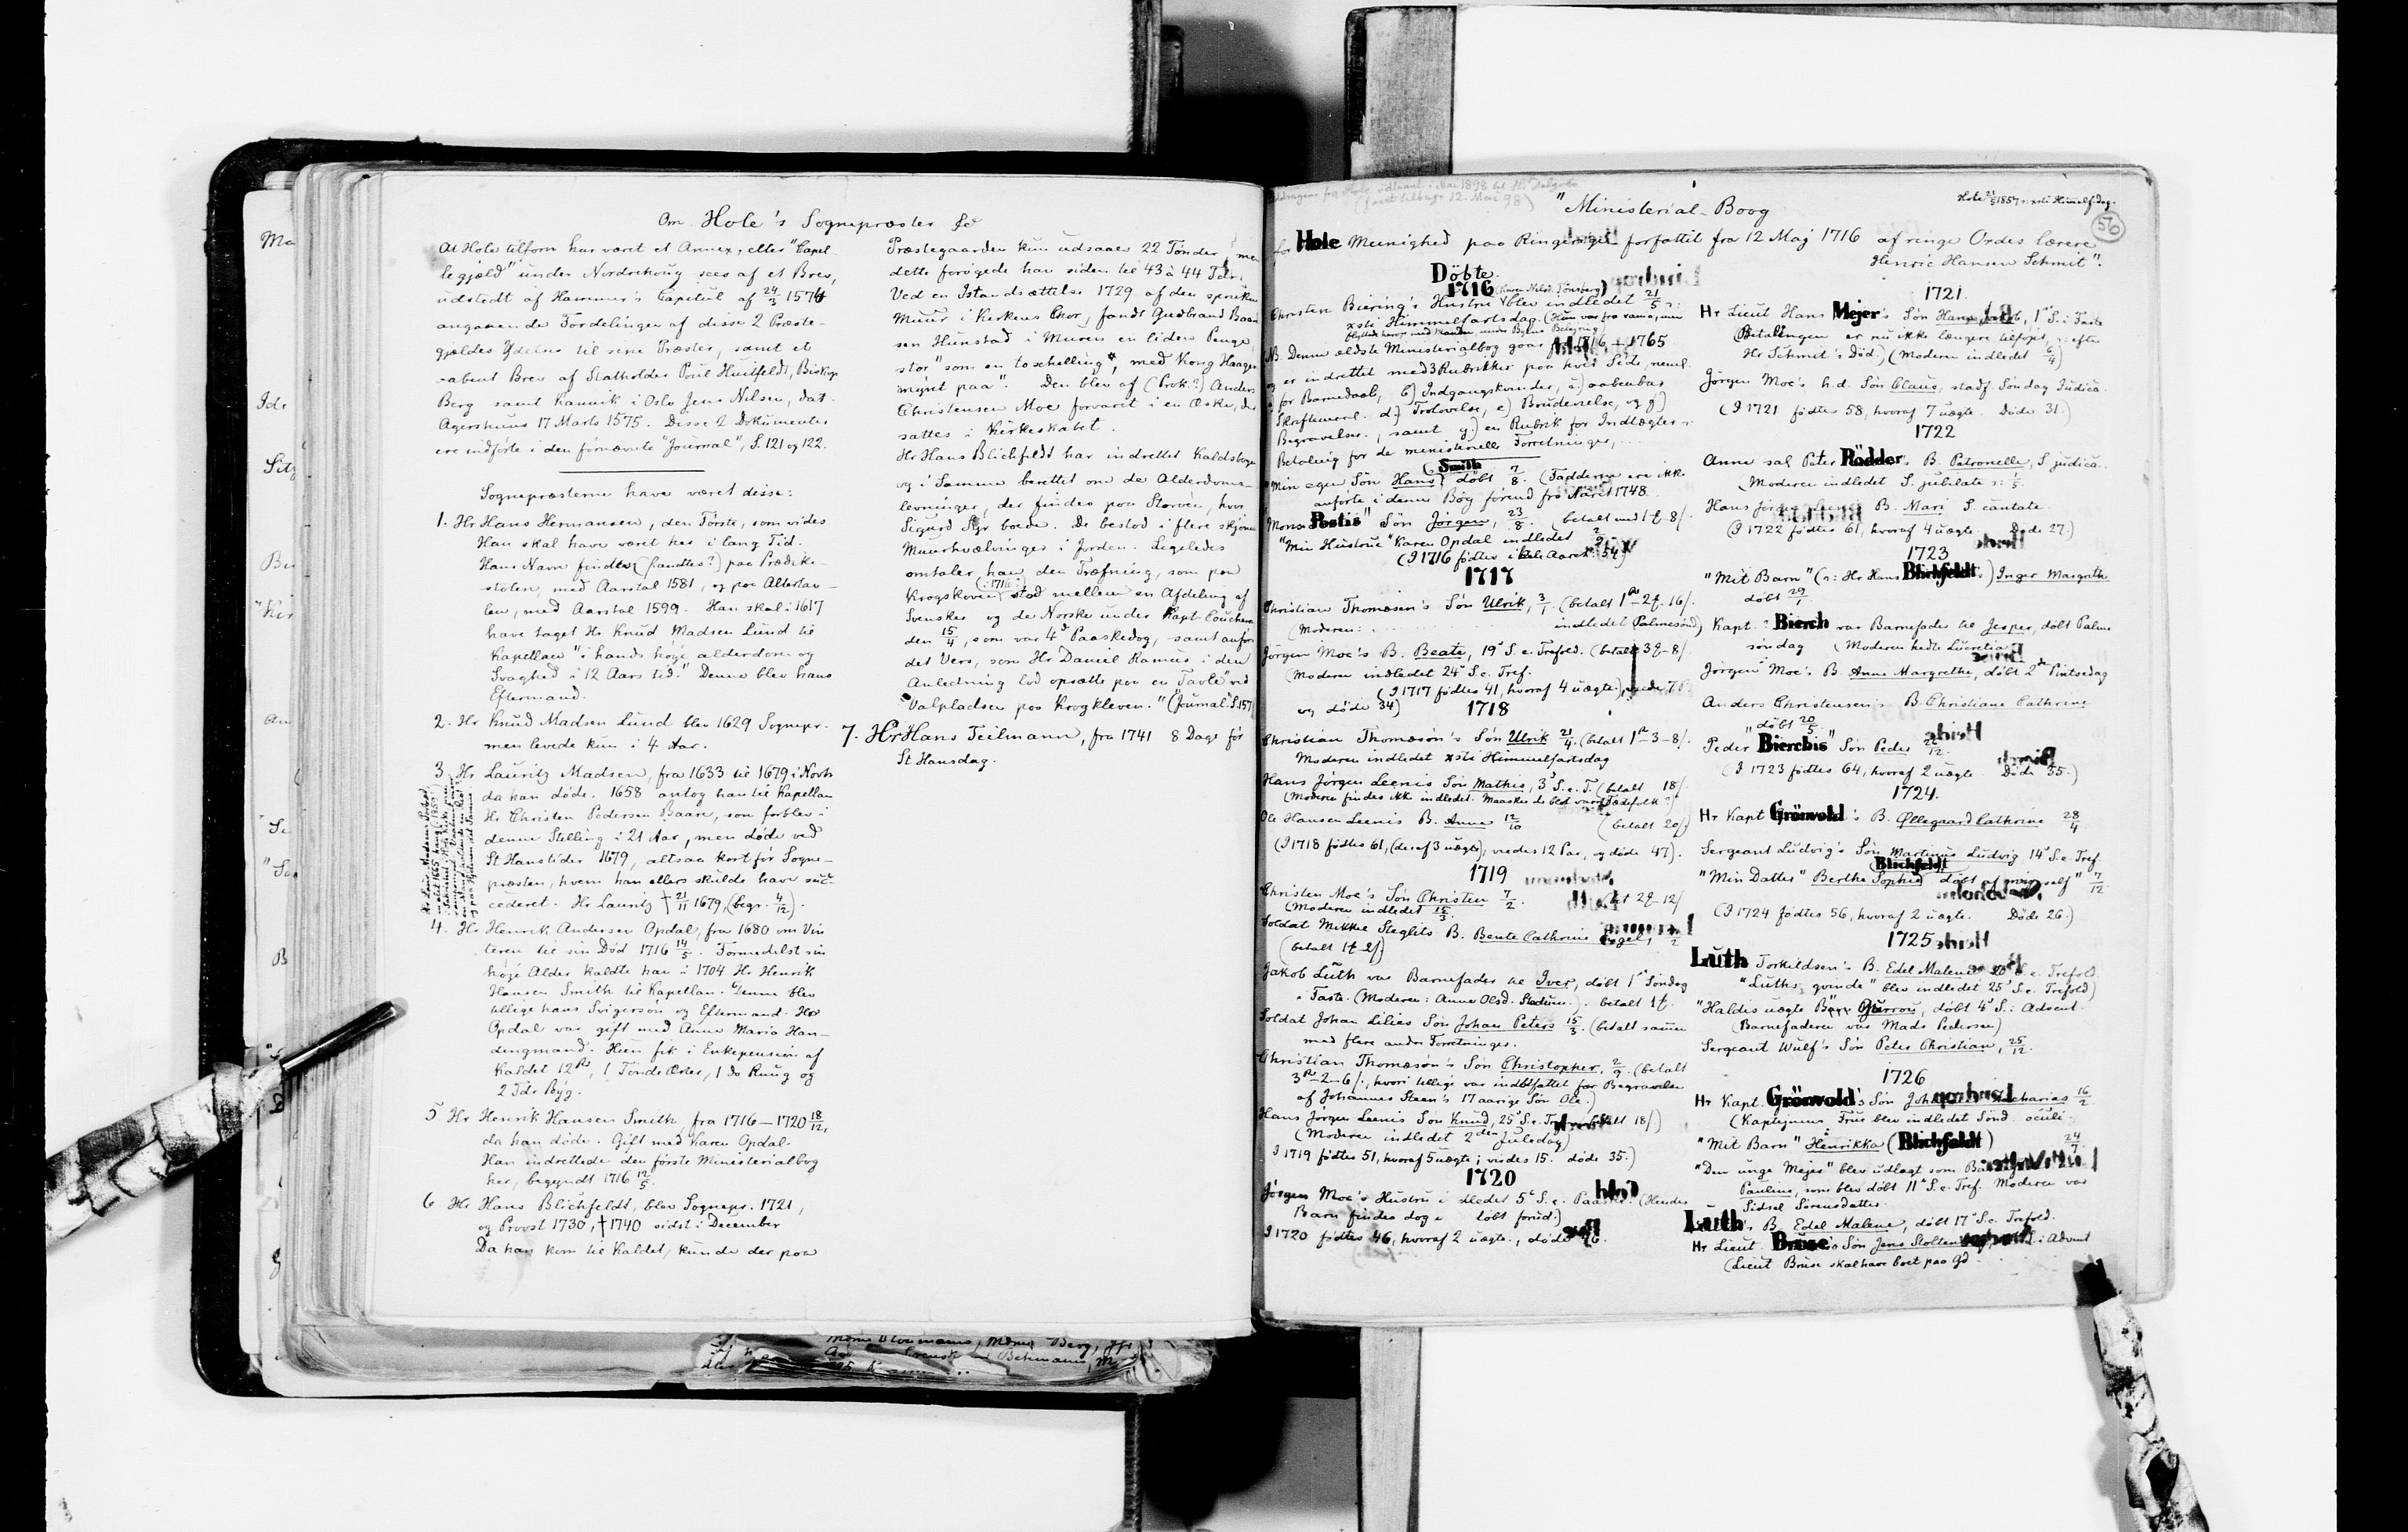 Om Hole's Sognepræster
At Hole tilforn har været et Annex, eller "Capel
legjæld" under Nordrehoug sees af et Brev,
udstedt af Hammer's Capitul af 24/3 1574
angaaende Fordelingen af disse 2 Præste-
gjældes Ydelser til sine Præster, samt et
aabent Brev af Statholder Poul Huitfeldt, Biskop
Berg samt Kannik i Oslo Jens Nilsen, dat.
Agershuus 17 Marts 1575. Disse 2 Dokumenter
ere indførte i den førnævnte "Journal", S. 121 og 122.
Sognepræsterne have været disse:
1. Hr Hans Hermansen, den Første, som vides
Han skal have været her i lang Tid.
Hans Navn findes (fandtes?) paa Prædike-
stolen, med Aarstal 1581, og paa Altertav-
len, med Aarstal 1599. Han skal i 1617
have taget Hr Knud Madsen Lund til
Kapellan "i hands høye alderdom og
Svaghed i 12 Aars tid." Denne blev hans
Eftermand.
2. Hr Knud Madsen Lund blev 1629 Sognepr.
men levede kun i 4 Aar.
3 Hr Lauritz Madsen, fra 1633 til 1679 i Novbr
da han døde. 1658 antog han til Kapellan
Hr Christen Pedersen Baare, som forblev i
denne Stelling i 21 Aar, men døde ved
St Hanstider 1679, altsaa kort før Sogne-
præsten, hvem han ellers skulde have suc-
cederet. Hr Lauritz † 21/11 1679, (begr. 4/12).
4. Hr Henrik Andersen Opdal, fra 1680 om Vin
teren til sin Død 1716 14/5. Formedelst sin
høje Alder kaldte han i 1704 Hr Henrik
Hansen Smith til Kapellan. Denne blev
tillige hans Svigersøn og Eftermand. Hr
Opdal var gift med Anne Maria Han-
dingmand. Hun fik i Enkepension af
Kaldet 12 Rd, 1 Tønde Øster, 1 do Ruug og
2 Tdr Byg.
5 Hr Henrik Hansen Smith, fra 1716 – 1720 18/12,
da han døde. Gift med Karen Opdal.
Han indrettede den første Ministerialbog
her, begyndt 1716 12/5.
6 Hr Hans Blichfeldt, blev Sognepr. 1721,
og Provst 1730, † 1740 sidst i December
Da han kom til Kaldet, kunde der paa
Præstegaarden kun udsaaes 22 Tønder, men
dette forøgede han siden til 43 à 44 Tdr.
Ved en Istandsættelse 1729 af den sprukne
Muur i Kirkens Chor, fandt Gudbrand Baar
sen Hunstad i Muren en liden Penge,
stor "som en toschelling", med Kong Haagen
myntet paa". Den blev af (Prok.?) Anders
Christensen Moe forvaret i en Æske, der
sattes i Kirkeskabet.
Hr Hans Blichfeldt har indrettet Kaldsbogen
og i Samme berettet om de Alderdoms-
levninger, der findes paa Storøen, hvor
Sigurd Syr boede. De bestod i flere skjønne
Muurhvælvinger i Jorden. Ligeledes
omtaler han den Træfning, som paa
(: 1716 :)
Krogskoven stod mellem en Afdeling af
Svenskes og de Norske under Kapt. Coucheron
den 15/4, som var 4d Paaskedag, samt anfør
det Vers, som Hr Daniel Ramus i den
Anledning lod opsætte paa en Tavle ved
Valpladsen paa Krogkleven." ("Journal" S. 157)
7. Hr Hans Teilmann, fra 1741 8 Dage før
St Hansdag.
"Ministerial-Boog
56
for Hole Meenighed paa Ringerige forfattit fra 12 Maj 1716 af ringe Ordes lærere
Henric Hansen Schmit".
Döbte
1716 (Karen Nilsd. Tønsberg)
Christen Biering's Hustru blev indledet 21/5 ɔ:
xsti Himmelfartsdag.
NB. Denne ældste Ministerialbog gaar fra 1716 – 1765
og er indrettet med 3 Rubrikker paa hver Side, neml.
for Barnedaab, b) Indgangskvinder, c) aabenbar
Skriftemaal. d) Trolovelse, e) Brudevielse, og f)
Begravelse, samt g) en Rubrik for Indtægter ɔ:
Betaling for de ministerielle Forretninger, ...
Smith
"Min egen Søn Hans, døbt 7/8. (Fadderne ere ikke
anførte i denne Bog førend fra Aaret 1748.
Monsr Postis" Søn Jørgen, 23/8.
"Min Hustrue" Karen Opdal indledet 2/9
(I 1716 fødtes i hele Aaret 54.)
1717
Christian Thomæsen's Søn Ulrik, 3/1. (betalt 1 Rd – 2 – 16/.
(Moderen: indledet Palmesønd)
Jørgen Moe's B. Beate, 19d S. e. Trefold. (betalt 3 – 8/.
(Moderen indledet 24d S. e. Tref.
(I 1717 fødtes 41, hvoraf 4 uægte),
og døde 34)
1718
Christian Thomæsøn's Søn Ulrik 21/4. (betalt 1 Rd – 3 – 8/.
Moderen indledet xsti Himmelfartsdag
Hans Jørgen Leenis Søn Mathis, 3d S. e. T. (betalt 18/.
Ole Hansen Leenis B. Anne 12/10 (betalt 20/.)
(I 1718 fødtes 61, (deraf 3 uægte), viedes 12 Par, og døde 47).
1719
Christen Moe's Søn Christen 7/2.
(Moderen indledet 15/3.
Soldat Mikkel Steglits B. Bente Cathrine
Jakob Luth var Barnefader til Iver, døbt 1d Søndag
i Faste. (Moderen: Anne Olsd. Stadum.)
Soldat Johan Lilies Søn Johan Peters 15/3. (betalt sammen
med flere andre Forretninger.
Christian Thomæsøn's Søn Christopher, 2/9. (betalt
3 Rd – 2 – 6/., hvori tillige var indbefattet for Begravelsen
af Johannes Steen's 17 aarige Søn Ole.)
Hans Jørgen Leenis Søn Knud, 25d S. e. Tref.
(Moderen indledet 2den Juledag)
I 1719 fødtes 51, hvoraf 5 uægte; viedes 15. døde 35.)
1720
Jørgen Moe's Hustru indledet 5d S. e. Paaske. (Hendes
Barn findes dog ei døbt forud.)
I 1720 fødtes 46, hvoraf 2 uægte., døde
1721.
Hr Lieut Hans Mejer's Søn Hans Jakob, 1d S. i Faste
Betalingen er nu ikke længere tilføjet, ɔ: efter
Hr Schmit's Død.) (Moderen indledet 6/4)
Jørgen Moe's h.d. Søn Claus, stadf. Søndag Judica.
(I 1721 fødtes 58, hvoraf 7 uægte. Døde 31.)
1722
Anne sal Peter Rödder's B. Petronelle, S judica.
(Moderen indledet S. jubilate
Hans Jørgen Leenis B. Mari S. cantate.
(I 1722 fødtes 61, hvoraf 4 uægte. Døde 27.)
1723
"Mit Barn" (ɔ: Hr Hans Blichfeldt's) Inger Margrethe
døbt 29/1
Kapt. Bierch var Barnefader til Jesper, døbt Palme
søndag (Moderen hedte Lucretia.
Jørgen Moe's B Anne Margrethe, døbt 2den Pintsedag
Anders Christensen's B. Christiane Cathrine
døbt 20/5.
Peder "Bierchis" Søn Peder 26/12.
(I 1723 fødtes 64, hvoraf 2 uægte Døde 35.)
1724.
Hr Kapt Grönvold's B. Øllegaard Cathrine 28/4
Sergeant Ludvig's Søn Martinus Ludvig 14d S. e. Tref.
Blichfeldt
"Min Datter" Berthe Sophie døbt af mig self" 7/12
(I 1724 fødtes 56, hvoraf 2 uægte. Døde 26.)
1725
Luth Torkildsen's B. Edel Malene 20d S. e. Trefold
"Luths qvinde" blev indledet 25d S. e. Trefold)
"Haldis uægte Barn Guroe, døbt 4d S. i Advent.
(Barnefaderen var Mads Pedersen)
Sergeant Wulf's Søn Peter Christian, 25/12.
1726
Hr Kapt. Grönvold's Søn Johan Zacharias 16/2.
(Kapteynens Frue blev indledet Sønd. oculi.
"Mit Barn" Henrikka (Blichfeldt) 24/7
"Den unge Mejer" blev udlagt som
Pauline, som blev døbt 11d S. e. Tref. Moderen var
Sidsel Sørensdatter.
Luth's B. Edel Malene, døbt 17d S. e. Trefold.
Hr Lieut. Bruse's Søn Jens i Advent
(Lieut Bruse skal have boet paa Gd